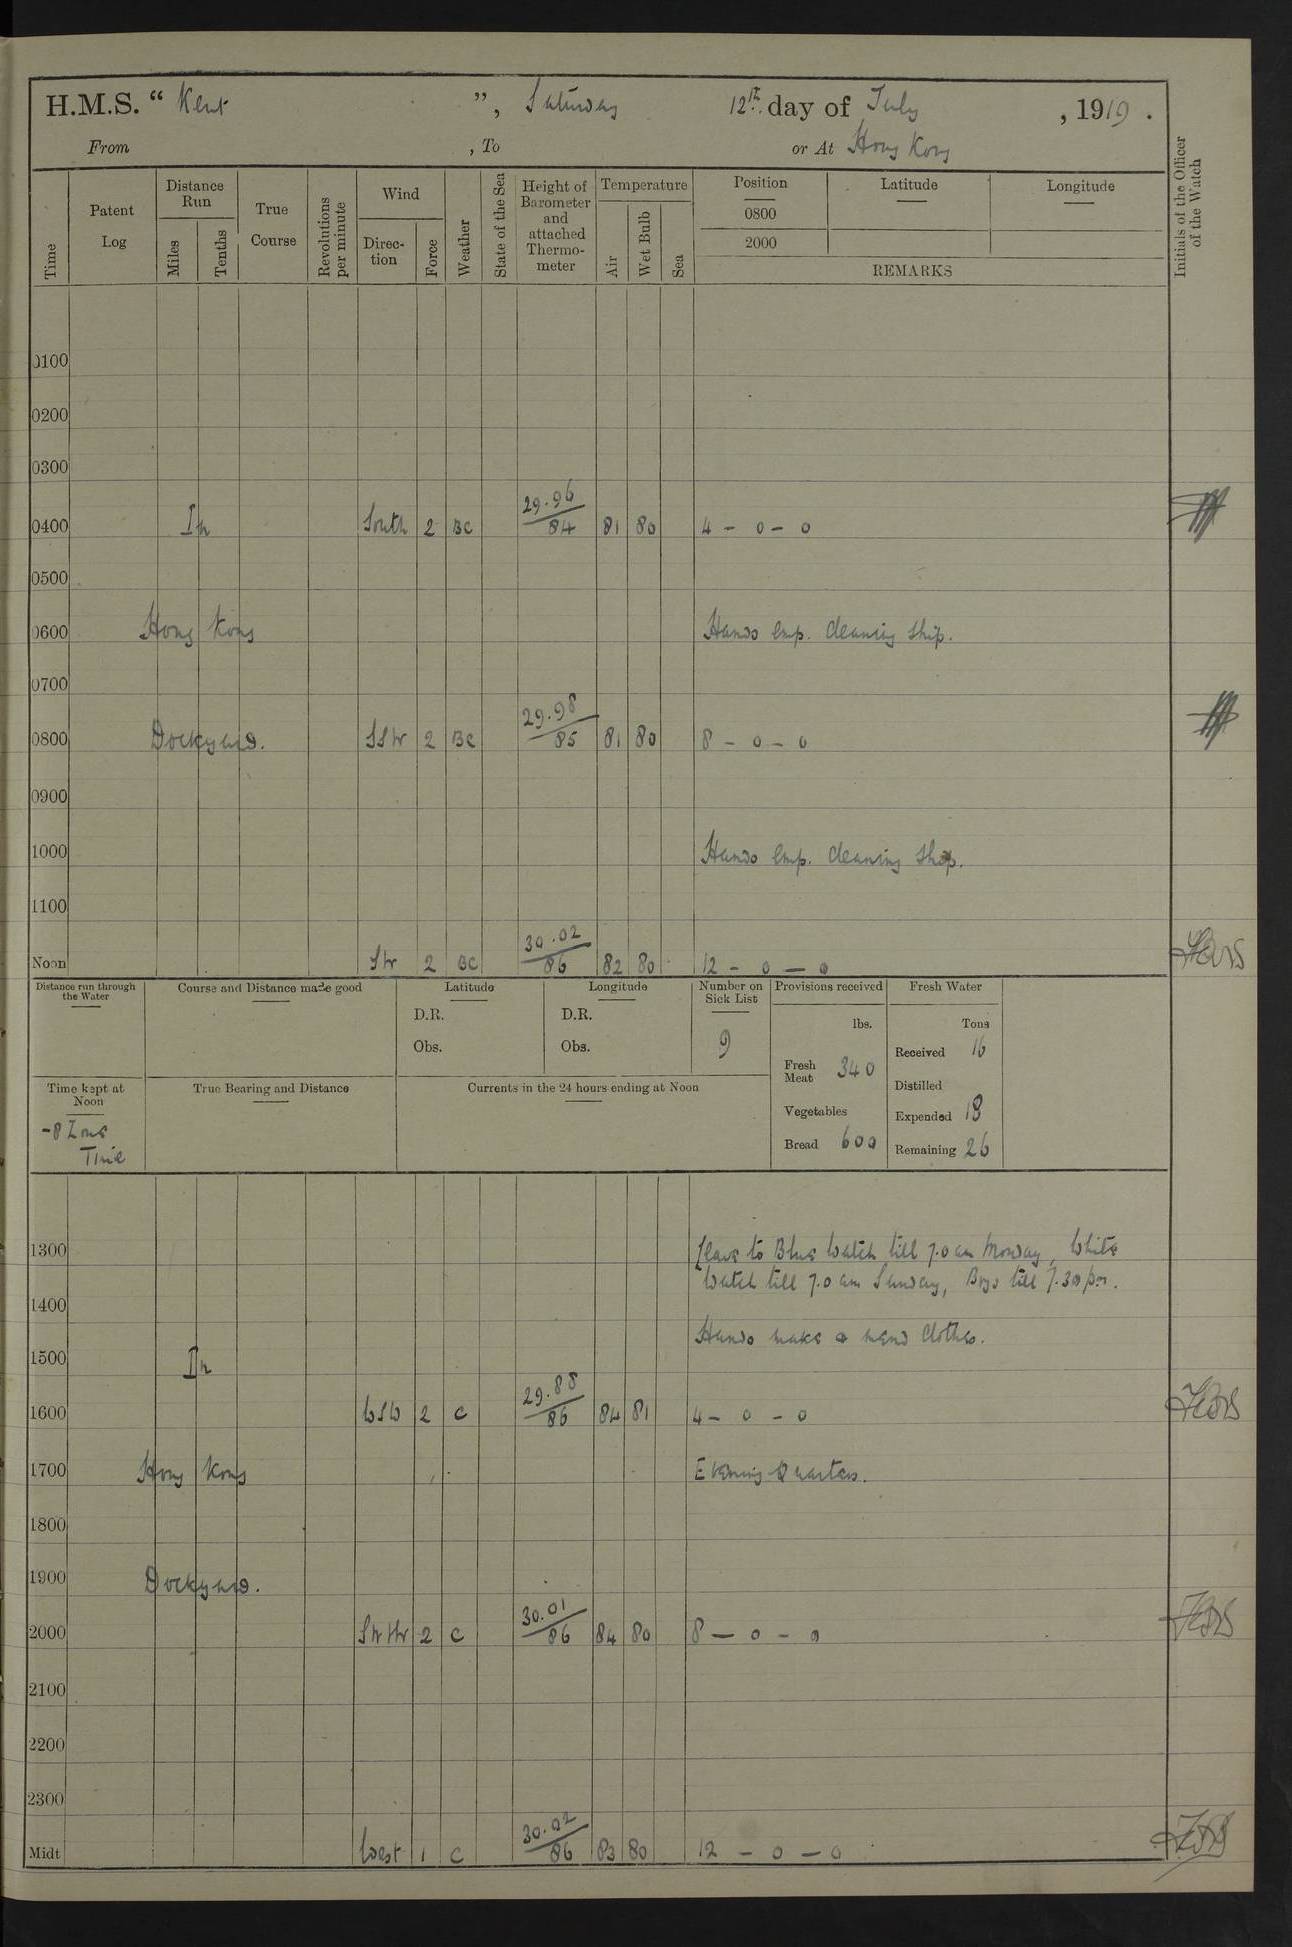 H.M.S. " Kent ", Saturday 12th day of July, 1919.
From , To or At Hong Kong
Time
Patent Log
Distance Run
Miles
Tenths
True Course
Revolutions per minute
Wind
Direction
Force
Weather
State of the Sea
Height of Barometer and attached Thermometer
Temperature
Air
Wet Bulb
Sea
Position
0800
2000
Latitude
Longitude
REMARKS
Initials of the Officer of the Watch
0100
0200
0300
0400 In South 2 BC 29.96 / 84 81 80 4 - 0 - 0
0500
0600 Hong Kong Hands emp. cleaning ship.
0700
0800 Dockyard. SSW 2 BC 29.98 / 85 81 80 8 - 0 - 0
0900
1000 Hands emp. cleaning ship.
1100
Noon SW 2 BC 30.02 / 86 82 80 12 - 0 - 0
Distance run through the Water
Course and Distance made good
Latitude
D.R.
Obs.
Longitude
D.R.
Obs.
Number on Sick List
9
Provisions received
lbs.
Fresh Meat 340
Vegetables
Bread 600
Fresh Water
Tons
Received 16
Distilled
Expended 18
Remaining 26
Time kept at Noon
-8 Zone
Time
True Bearing and Distance
Currents in the 24 hours ending at Noon
1300 Leave to Blue Watch till 7.0 am Monday, White
Watch till 7.0 am Sunday, Boys till 7.30 pm.
1400 Hands make & mend clothes.
1500 In
1600 WSW 2 C 29.88 / 86 84 81 4 - 0 - 0
1700 Hong Kong Evening Quarters.
1800
1900 Dockyard.
2000 SWW 2 C 30.01 / 86 84 80 8 - 0 - 0
2100
2200
2300
Midt West 1 C 30.02 / 86 83 80 12 - 0 - 0